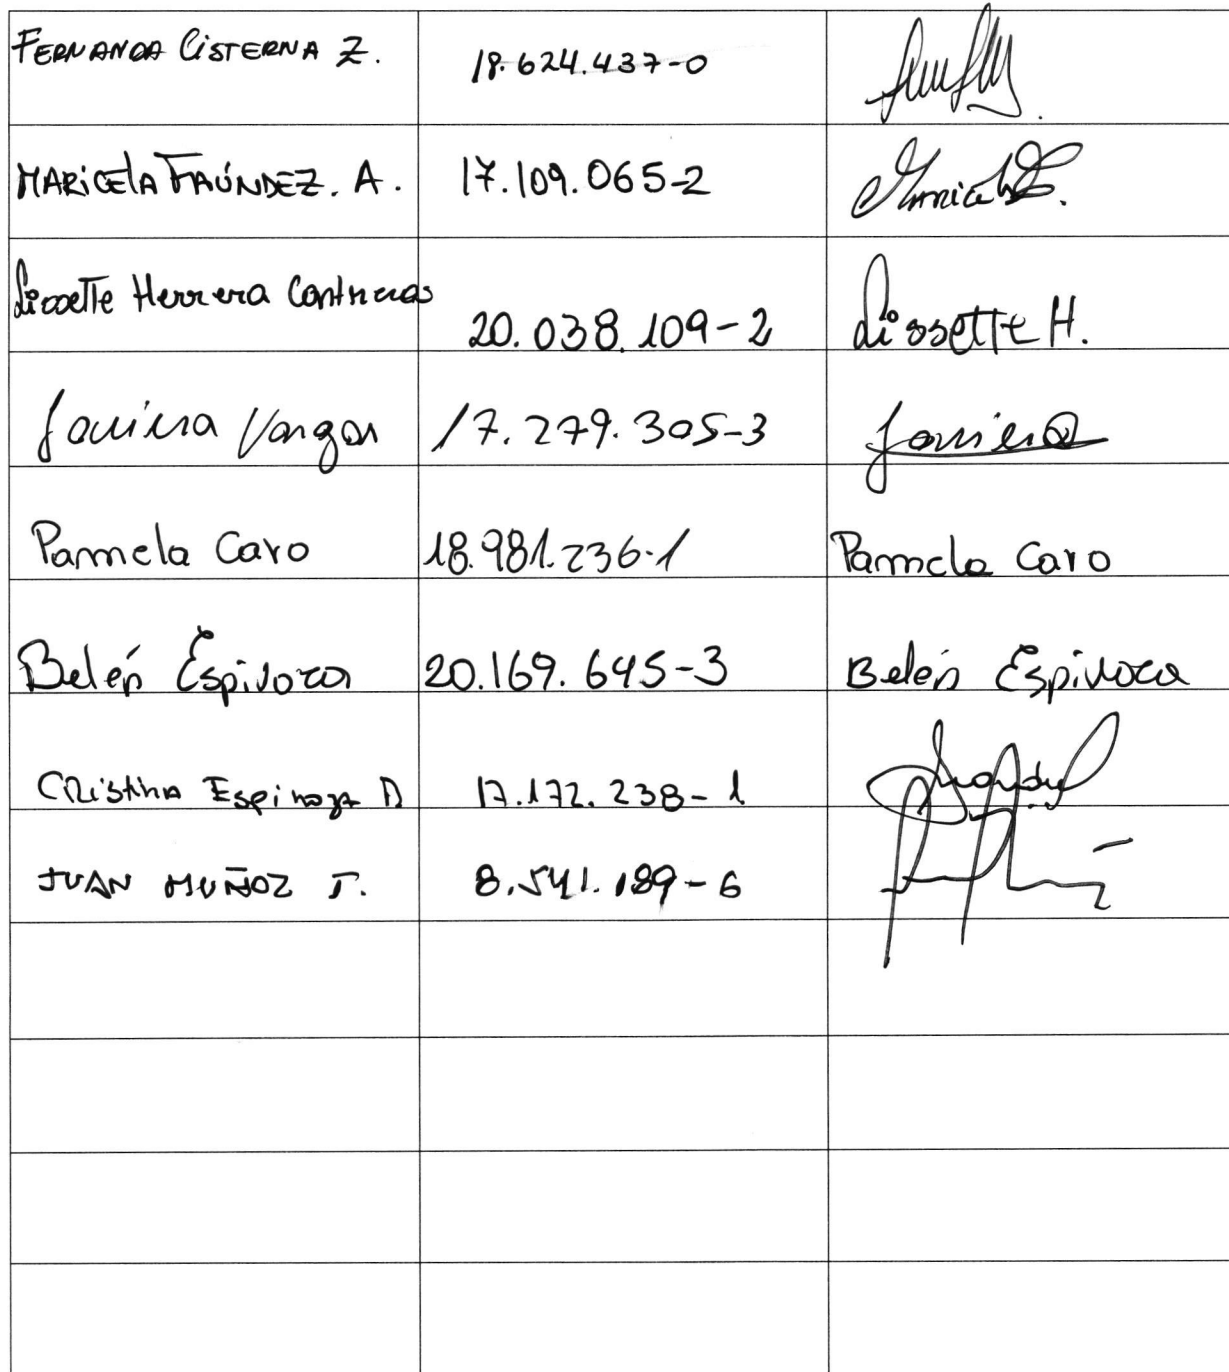 FERNANDA CISTERNA Z. 18.624.437-0
MARICELA FAÚNDEZ. A. 17.109.065-2
Lissette Herrera Contreras 20.038.109-2 Lissette H.
Javiera Vargas 17.279.305-3 Javiera
Pamela Caro 18.981.236-1 Pamela Caro
Belén Espinoza 20.169.645-3 Belén Espinoza
Cristina Espinoza D 17.172.238-1
JUAN MUÑOZ J. 8.541.189-6